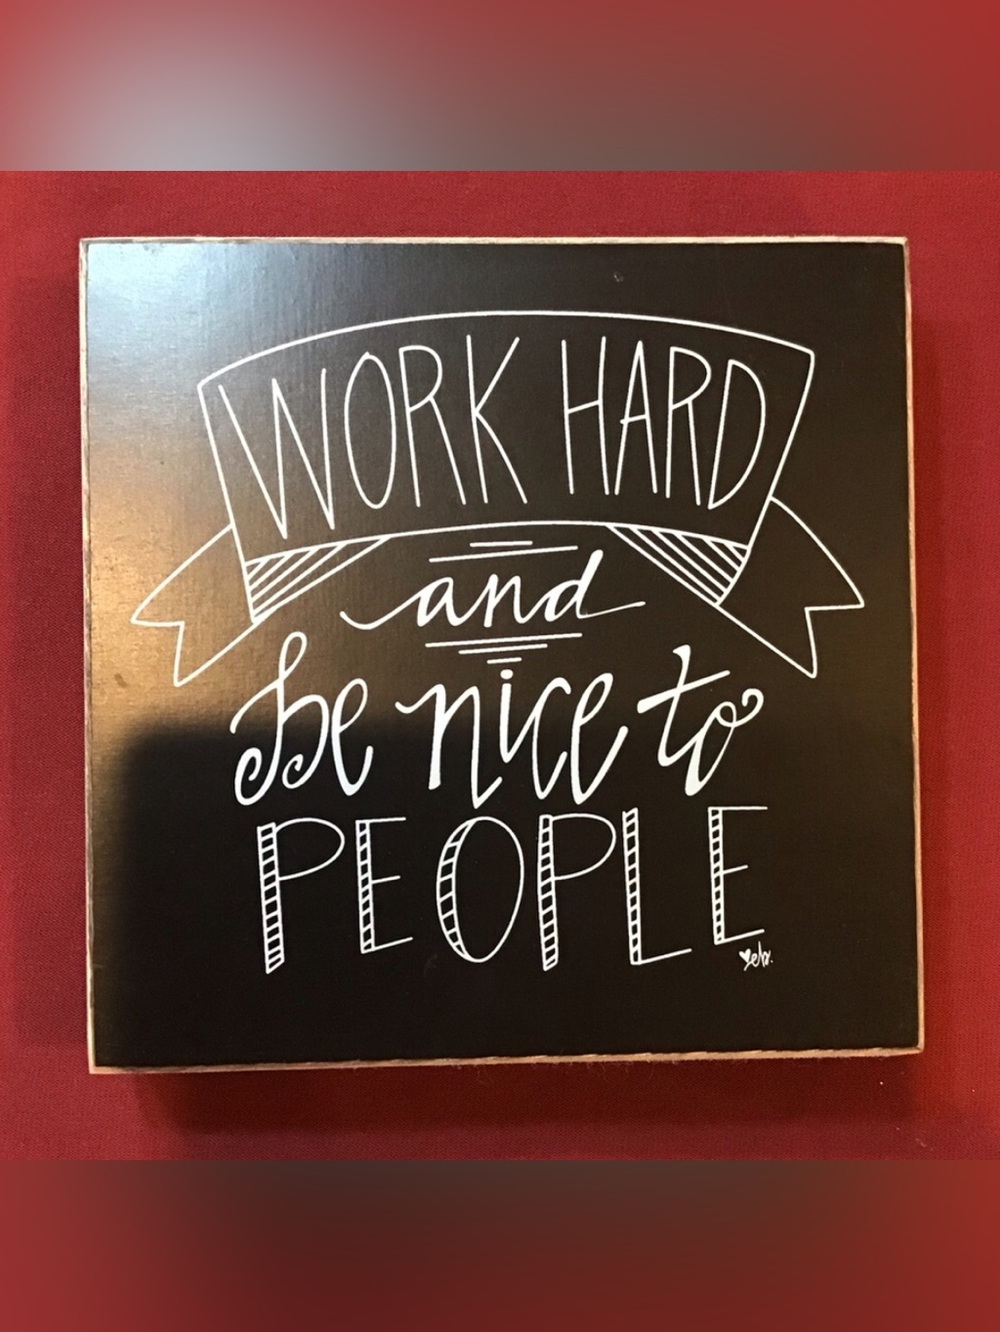 WORK HARD
and
be nice to
PEOPLE